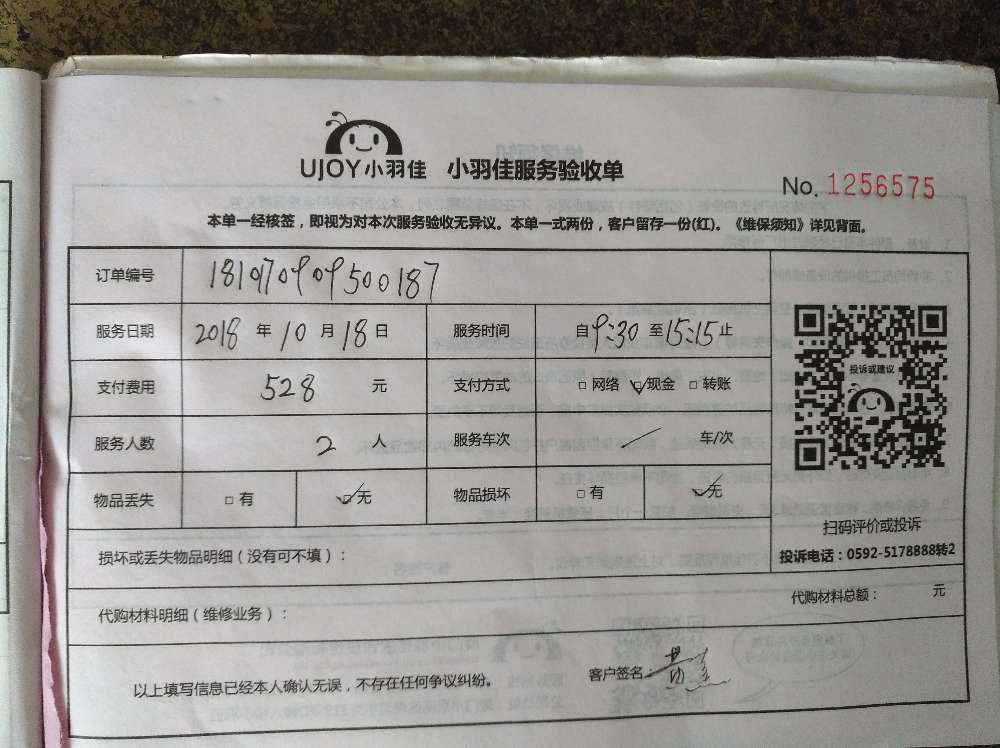 UJOY小羽佳 小羽佳服务验收单
No. 1256575
本单一经核签，即视为对本次服务验收无异议。本单一式两份，客户留存一份(红)。《维保须知》详见背面。
订单编号 181970909500187
服务日期 2018 年 10 月 18 日 服务时间 自 9:30 至 15:15 止
支付费用 528 元 支付方式 □网络 ☑现金 □转账
服务人数 2 人 服务车次 / 车/次
物品丢失 □有 ☑无 物品损坏 □有 ☑无
投诉或建议
扫码评价或投诉
投诉电话：0592-5178888转2
损坏或丢失物品明细（没有可不填）：
代购材料明细（维修业务）： 代购材料总额： 元
以上填写信息已经本人确认无误，不存在任何争议纠纷。 客户签名：